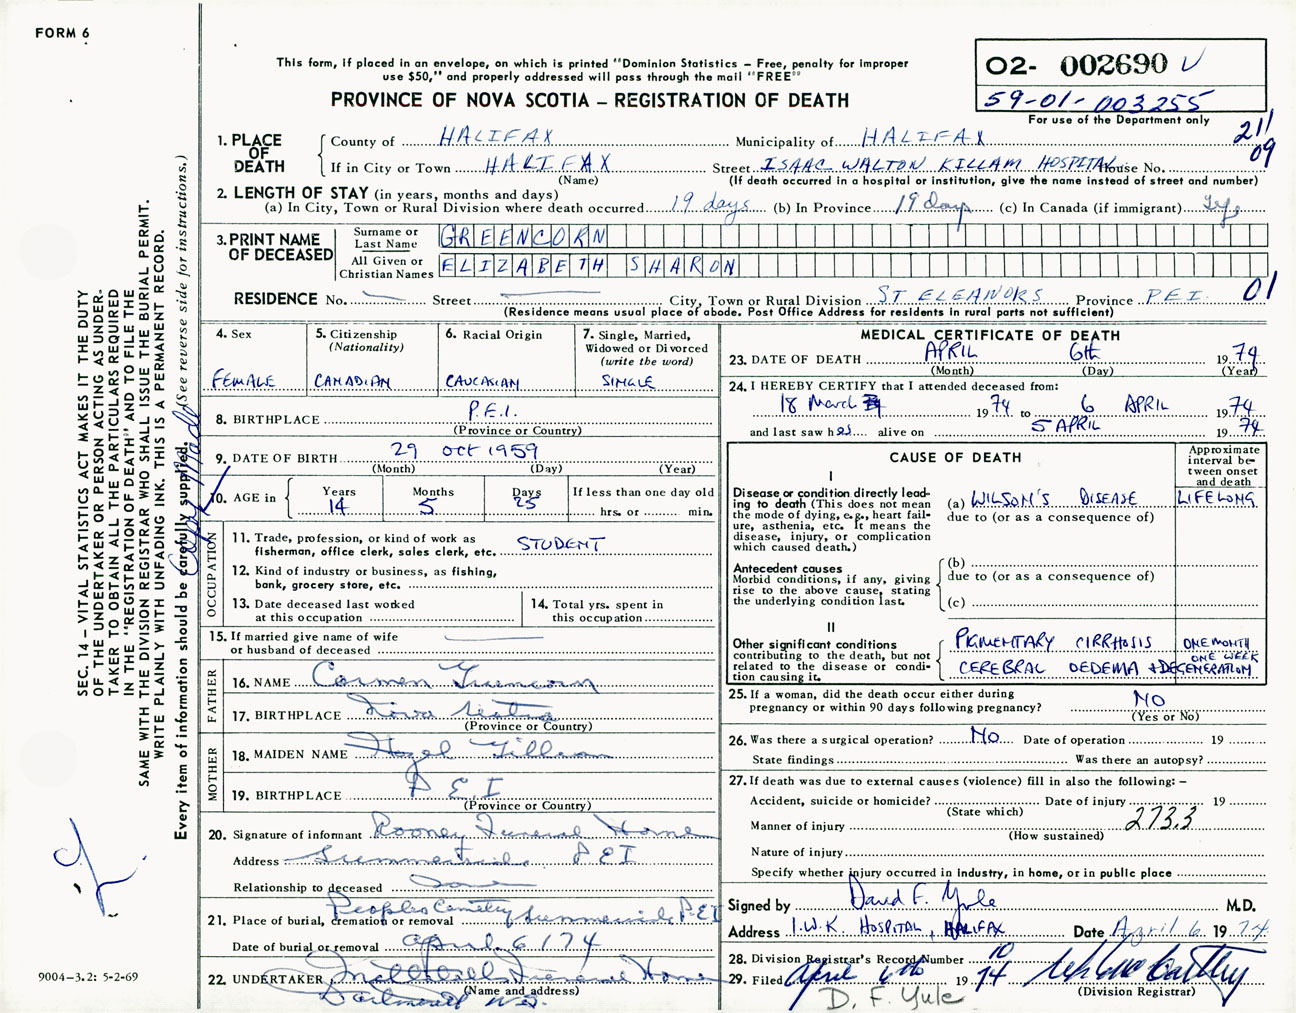 FORM 6
This form, if placed in an envelope, on which is printed "Dominion Statistics – Free, penalty for improper
use $50," and properly addressed will pass through the mail "FREE"
PROVINCE OF NOVA SCOTIA – REGISTRATION OF DEATH
02- 002690
59-01-003255
For use of the Department only
211
09
1. PLACE OF DEATH
County of HALIFAX Municipality of HALIFAX
If in City or Town HALIFAX Street ISAAC WALTON KILLAM HOSPITAL House No.
(Name) (If death occurred in a hospital or institution, give the name instead of street and number)
2. LENGTH OF STAY (in years, months and days)
(a) In City, Town or Rural Division where death occurred 19 days (b) In Province 19 days (c) In Canada (if immigrant) Life
3. PRINT NAME OF DECEASED
Surname or Last Name GREENCORN
All Given or Christian Names ELIZABETH SHARON
RESIDENCE No. Street City, Town or Rural Division ST ELEANORS Province P.E.I. 01
(Residence means usual place of abode. Post Office Address for residents in rural parts not sufficient)
4. Sex FEMALE
5. Citizenship (Nationality) CANADIAN
6. Racial Origin CAUCASIAN
7. Single, Married, Widowed or Divorced (write the word) SINGLE
8. BIRTHPLACE P.E.I.
(Province or Country)
9. DATE OF BIRTH 29 OCT 1959
(Month) (Day) (Year)
10. AGE in Years 14 Months 5 Days 25 If less than one day old hrs. or min.
OCCUPATION
11. Trade, profession, or kind of work as
fisherman, office clerk, sales clerk, etc. STUDENT
12. Kind of industry or business, as fishing,
bank, grocery store, etc.
13. Date deceased last worked at this occupation
14. Total yrs. spent in this occupation
15. If married give name of wife
or husband of deceased
FATHER
16. NAME Carmen Greencorn
17. BIRTHPLACE Nova Scotia
(Province or Country)
MOTHER
18. MAIDEN NAME Hazel
19. BIRTHPLACE P.E.I
(Province or Country)
20. Signature of informant Rooney Funeral Home
Address Summerside P.E.I
Relationship to deceased
21. Place of burial, cremation or removal Peoples Cemetery Summerside P.E.I
Date of burial or removal April 6 / 74
22. UNDERTAKER Funeral Home
(Name and address)
Dartmouth N.S.
MEDICAL CERTIFICATE OF DEATH
23. DATE OF DEATH APRIL 6th 1974
(Month) (Day) (Year)
24. I HEREBY CERTIFY that I attended deceased from:
18 March 1974 to 6 APRIL 1974
and last saw her alive on 5 APRIL 1974
CAUSE OF DEATH
Approximate interval between onset and death
I
Disease or condition directly lead-
ing to death (This does not mean
the mode of dying, e.g., heart fail-
ure, asthenia, etc. It means the
disease, injury, or complication
which caused death.)
(a) WILSON'S DISEASE LIFELONG
due to (or as a consequence of)
Antecedent causes
Morbid conditions, if any, giving
rise to the above cause, stating
the underlying condition last.
(b)
due to (or as a consequence of)
(c)
II
Other significant conditions
contributing to the death, but not
related to the disease or condi-
tion causing it.
PIGMENTARY CIRRHOSIS ONE MONTH
CEREBRAL OEDEMA + DEGENERATION ONE WEEK
25. If a woman, did the death occur either during
pregnancy or within 90 days following pregnancy? NO
(Yes or No)
26. Was there a surgical operation? NO Date of operation 19
State findings Was there an autopsy?
27. If death was due to external causes (violence) fill in also the following: –
Accident, suicide or homicide? Date of injury 19
(State which)
Manner of injury 273.3
(How sustained)
Nature of injury
Specify whether injury occurred in industry, in home, or in public place
Signed by David F. Yule M.D.
Address I.W.K HOSPITAL, HALIFAX Date April 6 1974
28. Division Registrar's Record Number 10
29. Filed April 1974
(Division Registrar)
D. F. Yule
SEC. 14 – VITAL STATISTICS ACT MAKES IT THE DUTY
OF THE UNDERTAKER OR PERSON ACTING AS UNDER-
TAKER TO OBTAIN ALL THE PARTICULARS REQUIRED
IN THE "REGISTRATION OF DEATH" AND TO FILE THE
SAME WITH THE DIVISION REGISTRAR WHO SHALL ISSUE THE BURIAL PERMIT.
WRITE PLAINLY WITH UNFADING INK. THIS IS A PERMANENT RECORD.
Every item of information should be carefully supplied. (See reverse side for instructions.)
9004–3.2: 5-2-69